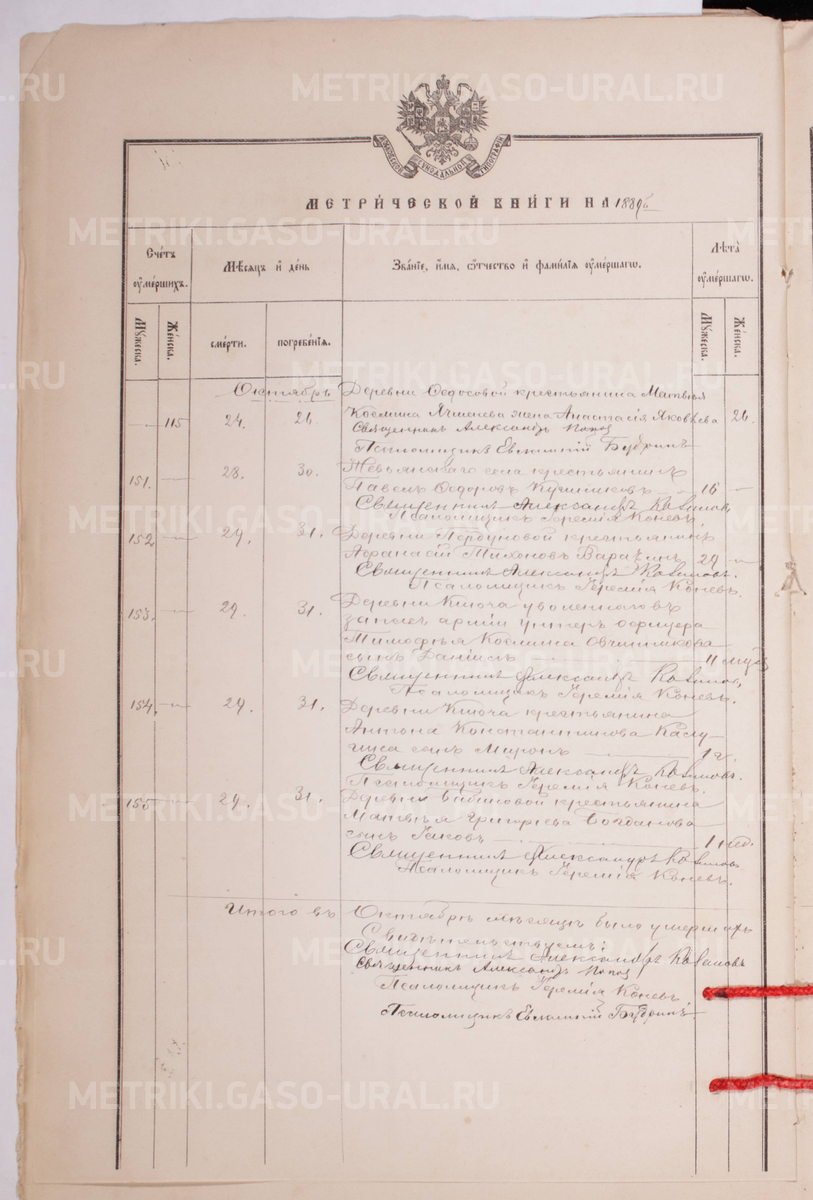 METRIKI.GASO-URAL.RU
МОСКОВСКОЙ СѴНОДАЛЬНОЙ ТИПОГРАФІИ
МЕТРИ́ЧЕСКОЙ КНИ́ГИ НА 1889
Сче́тъ оуме́ршихъ.
Мѣ́сяцъ и де́нь
Зва́нїе, и́мя, ѻ́тчество и фами́лїя оуме́ршагѡ.
Лѣ́та оуме́ршагѡ.
Му́жеска.
Же́нска.
сме́рти.
погребе́нїя.
Му́жеска.
Же́нска.
Октябрь Деревни Ѳедосовой крестьянина Матвѣя
115 24. 26 Космина жена Анастасія Яковлева 26.
Священникъ Александръ Попов
Псаломщикъ Евѳимій Бубринъ
151. — 28. 30. Невьянскаго села крестьянинъ
Павелъ Ѳедоровъ 16 —
Священникъ Александръ
Псаломщикъ Іеремія Коневъ.
152 — 29. 31. Деревни крестьянинъ
Аѳанасій Тихоновъ Варакинъ 29 —
Священникъ Александръ
Псаломщикъ Іеремія Коневъ.
153. — 29. 31. Деревни Ключа уволеннаго въ
запасъ арміи унтеръ офицера
Тимофѣя Космина Овчинникова
сынъ Даніилъ 11
Священникъ Александръ
Псаломщикъ Іеремія Коневъ.
154. — 29. 31. Деревни Ключа крестьянина
Антона Константинова
сынъ Миронъ 1 г.
Священникъ Александръ
Псаломщикъ Іеремія Коневъ.
155 — 29. 31. Деревни Бабиновой крестьянина
Матвѣя Григорьева Богданова
сынъ Іаковъ 1 нед.
Священникъ Александръ
Псаломщикъ Іеремія Коневъ.
Итого въ Октябрѣ мѣсяцѣ было умершихъ
Свидѣтельствуемъ:
Священникъ Александръ
Священникъ Александръ Попов
Псаломщикъ Іеремія Коневъ.
Псаломщикъ Евѳимій Бубринъ